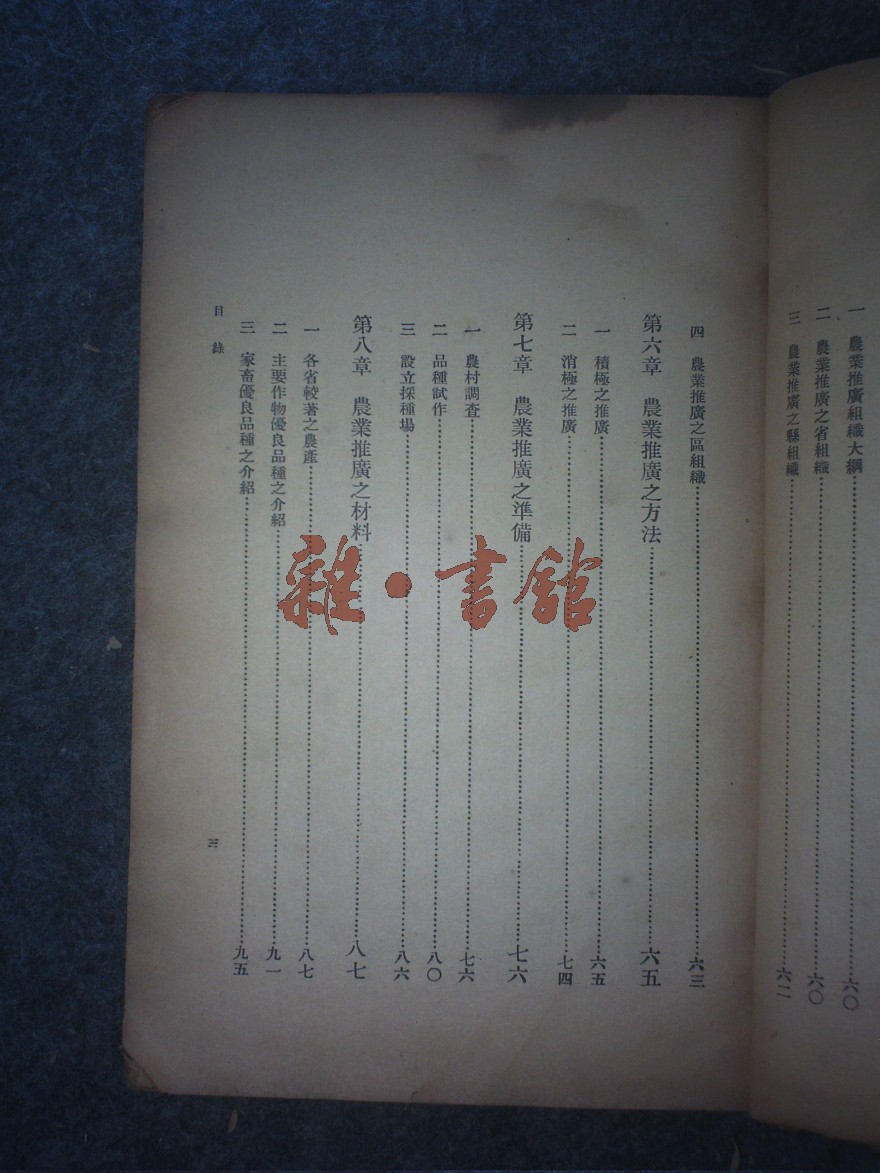 一　農業推廣組織大綱……六〇
二　農業推廣之省組織……六〇
三　農業推廣之縣組織……六二
四　農業推廣之區組織……六三
第六章　農業推廣之方法……六五
一　積極之推廣……六五
二　消極之推廣……七四
第七章　農業推廣之準備……七六
一　農村調查……七六
二　品種試作……八〇
三　設立採種場……八六
第八章　農業推廣之材料……八七
一　各省較著之農產……八七
二　主要作物優良品種之介紹……九一
三　家畜優良品種之介紹……九五
目錄
三
雜·書館